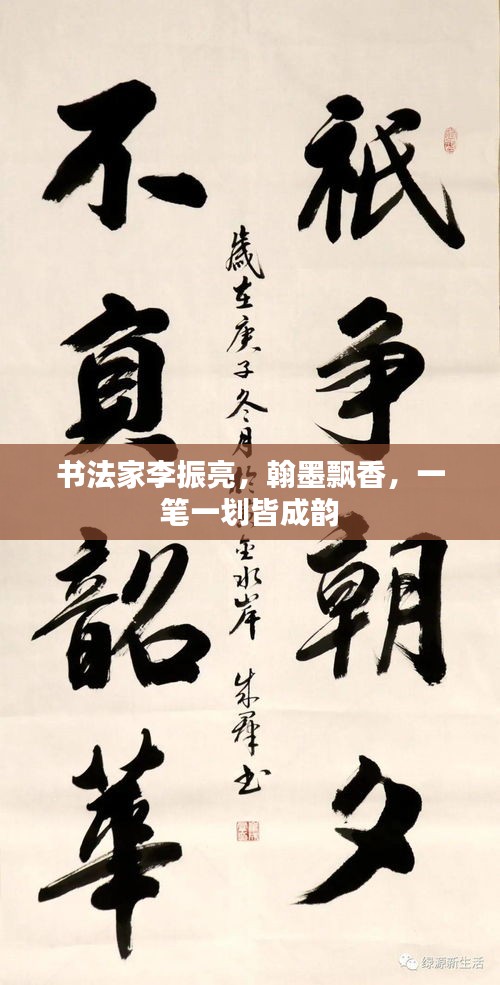 祇争朝夕
不負韶華
歲在庚子冬月於
金水岸 朱群书
书法家李振亮，翰墨飘香，一
笔一划皆成韵
绿源新生活